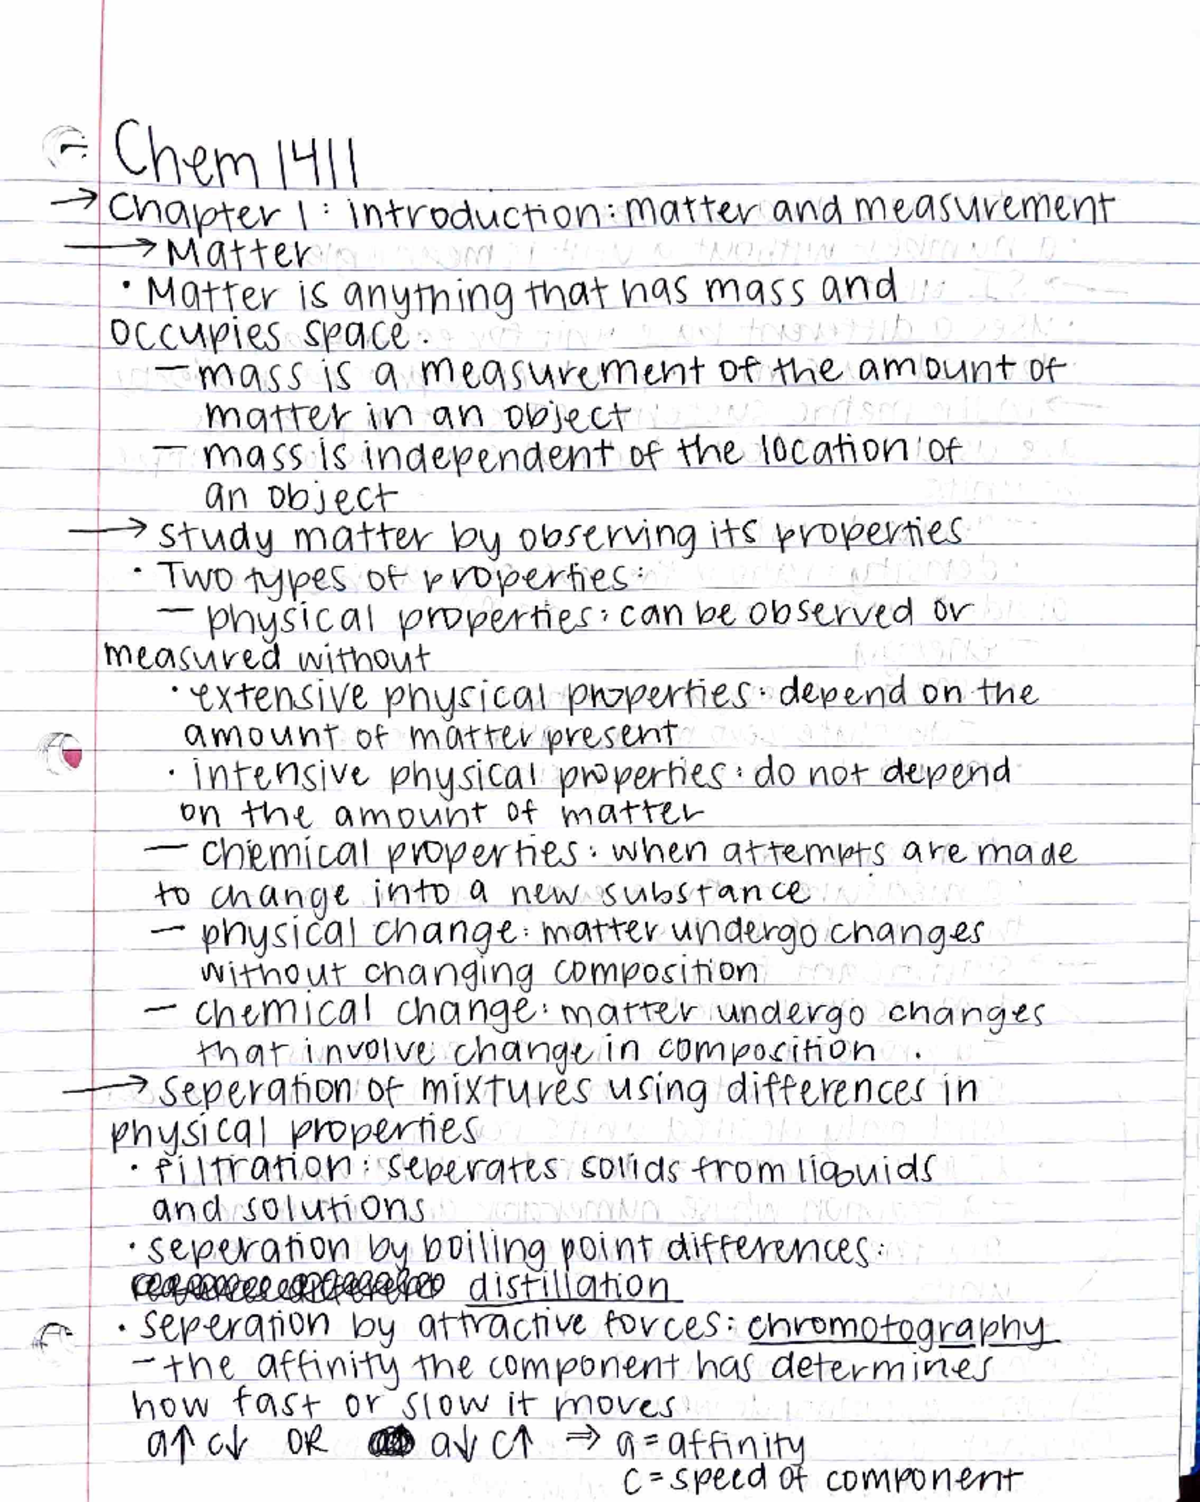 Chem 1411
→ Chapter 1: introduction: matter and measurement
→ Matter
• Matter is anything that has mass and
occupies space.
— mass is a measurement of the amount of
matter in an object
— mass is independent of the location of
an object
→ study matter by observing its properties
• Two types of properties:
— physical properties: can be observed or
measured without
• extensive physical properties: depend on the
amount of matter present
• intensive physical properties: do not depend
on the amount of matter
— chemical properties: when attempts are made
to change into a new substance
— physical change: matter undergo changes
without changing composition
— chemical change: matter undergo changes
that involve change in composition.
→ seperation of mixtures using differences in
physical properties
• filtration: seperates solids from liquids
and solutions
• seperation by boiling point differences:
distillation
• seperation by attractive forces: chromotography
— the affinity the component has determines
how fast or slow it moves
a↑ c↓ OR a↓ c↑ ⇒ a = affinity
c = speed of component